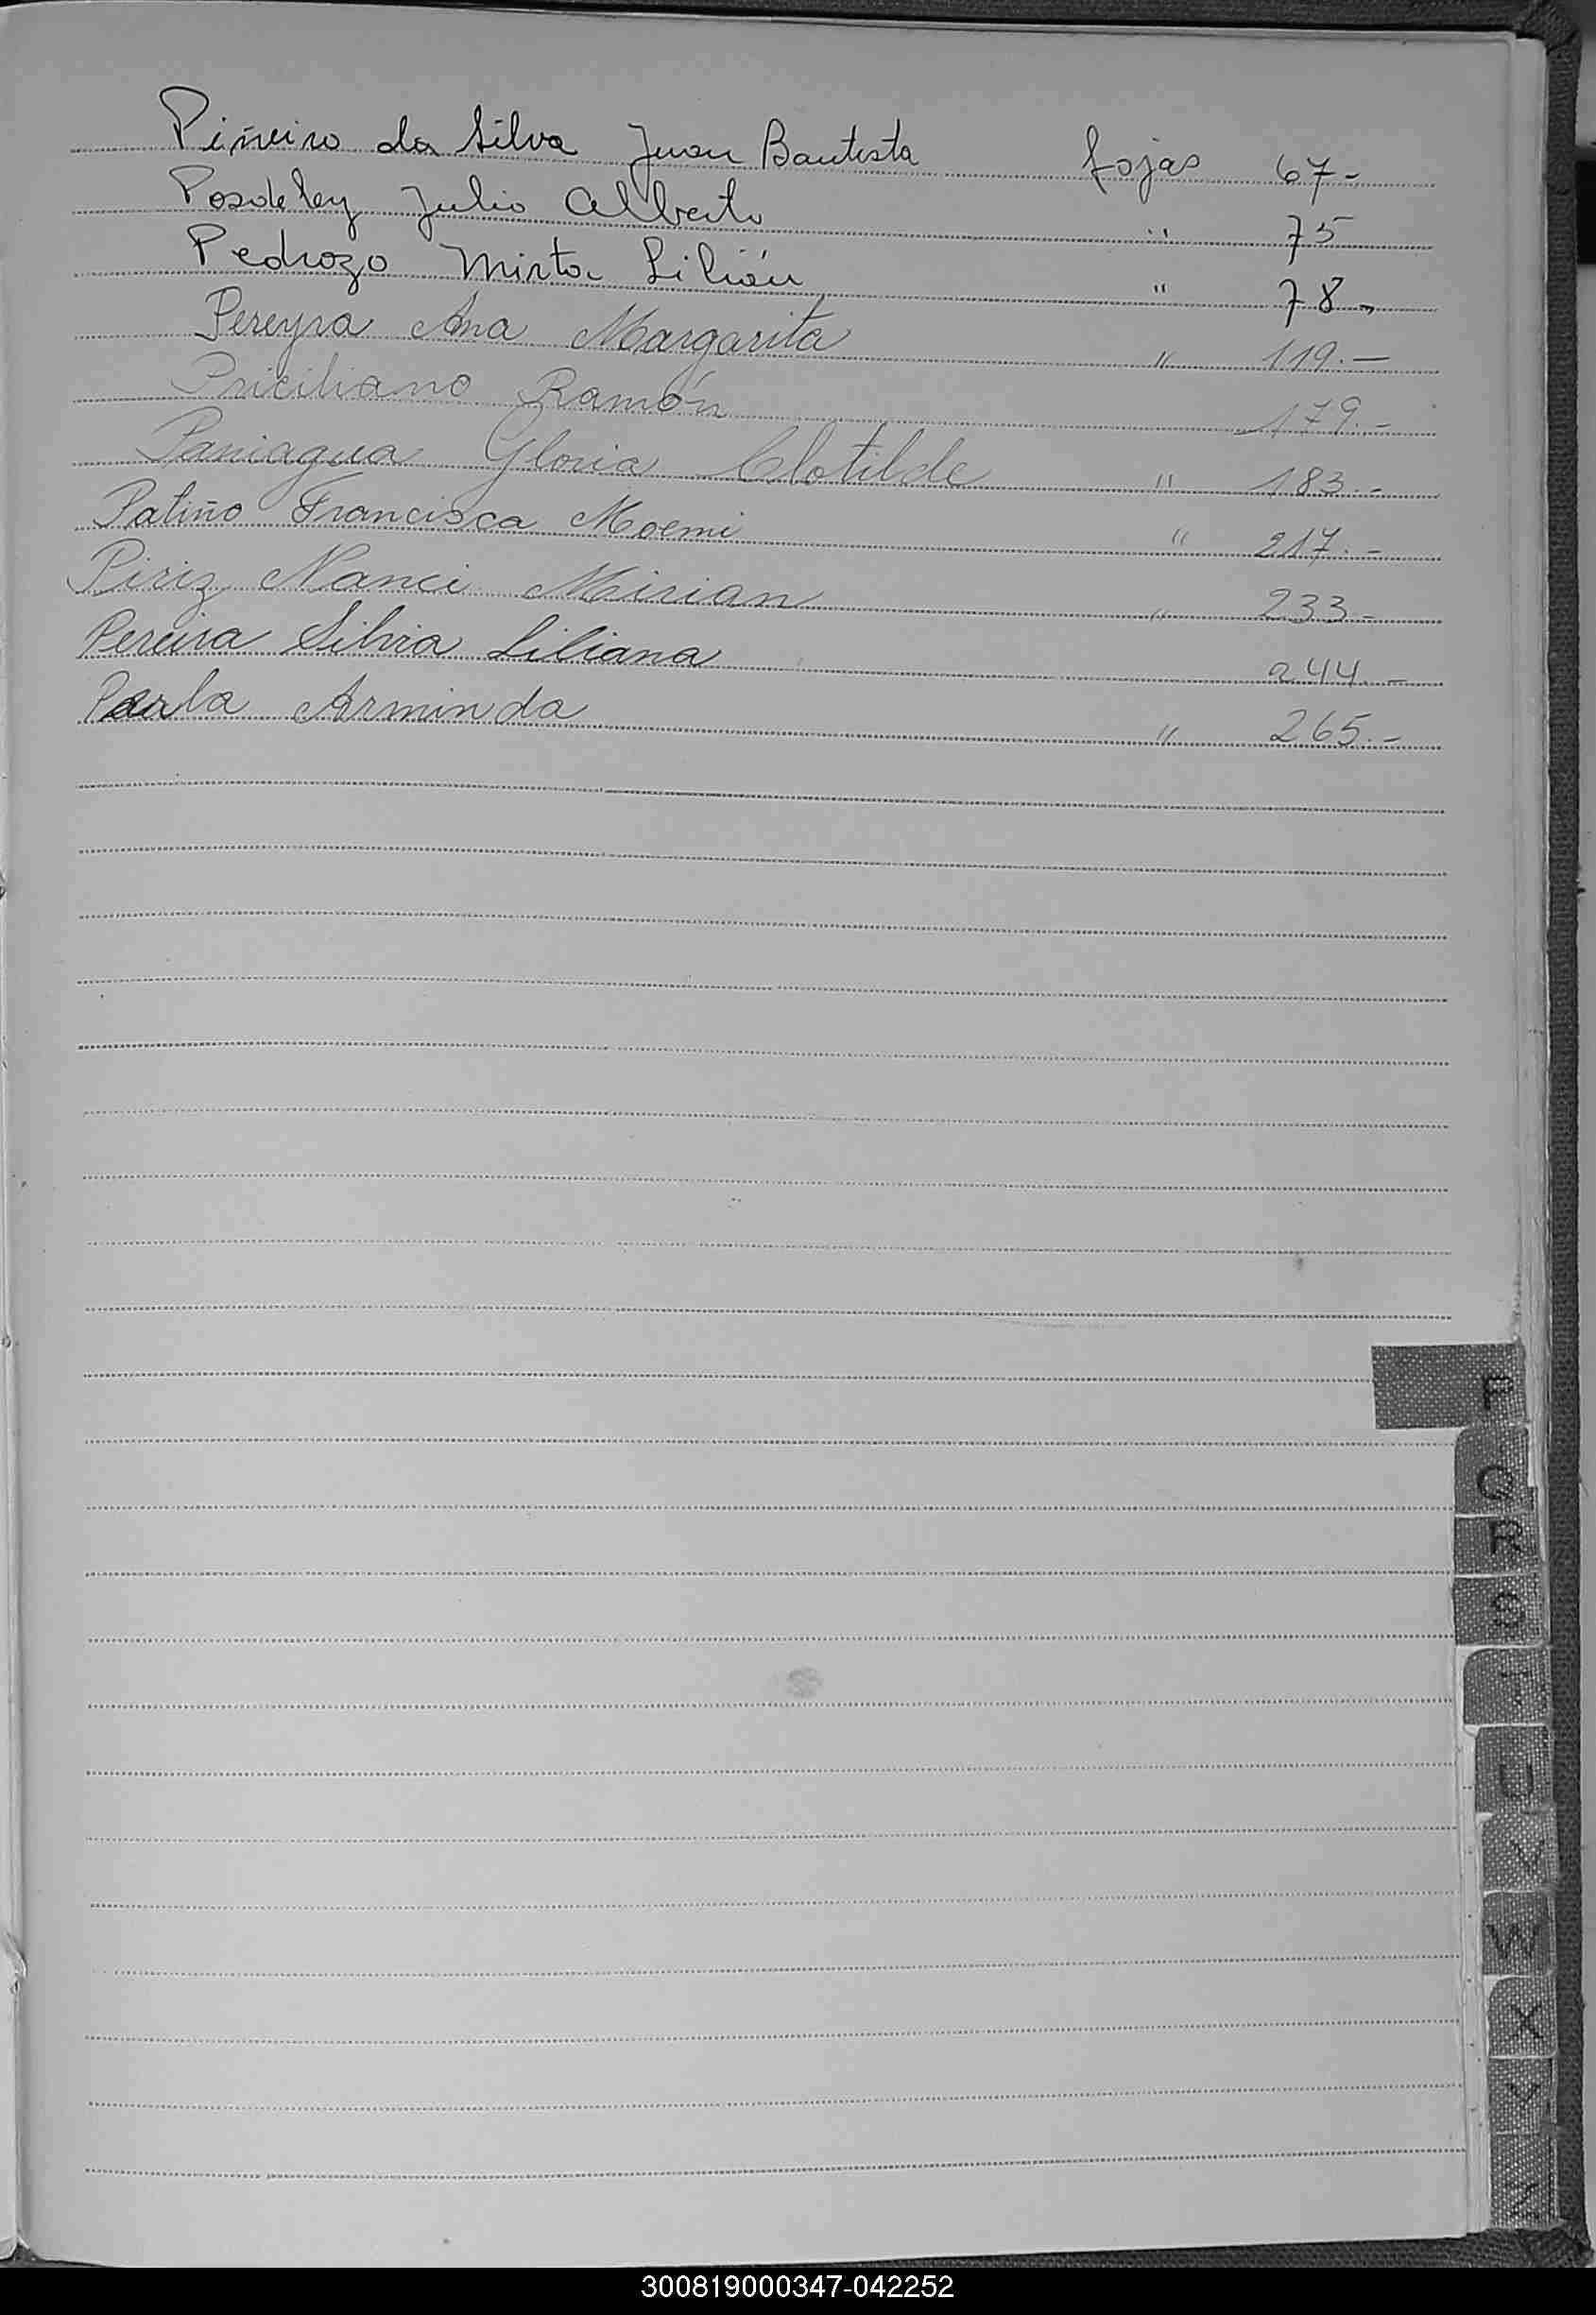 Piñeiro da Silva Juan Bautista fojas 67-
Posdeley Julio Alberto " 75
Pedrozo Mirta Lilián " 78-
Pereyra Ana Margarita " 119.-
Priciliano Ramón 179.-
Paniagua Gloria Clotilde " 183.-
Patiño Francisca Noemi " 217.-
Piriz Nanci Mirian " 233-
Pereira Silvia Liliana 244.-
Arminda " 265.-
P
Q
R
S
T
U
V
W
X
Y
Z
300819000347-042252